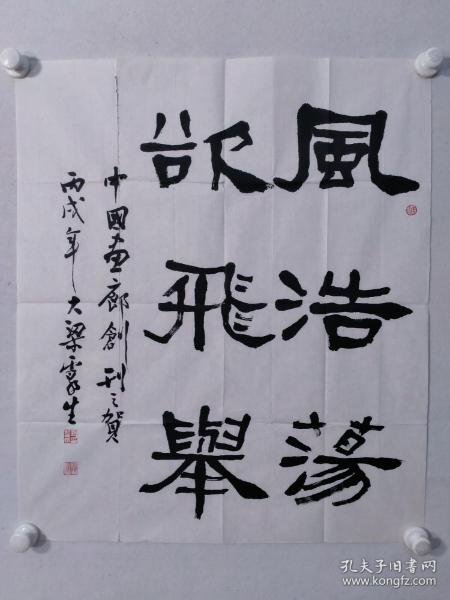 風浩蕩
欲飛舉
中國画廊創刊之賀
丙戌年大梁生
孔夫子旧书网
www.kongfz.com